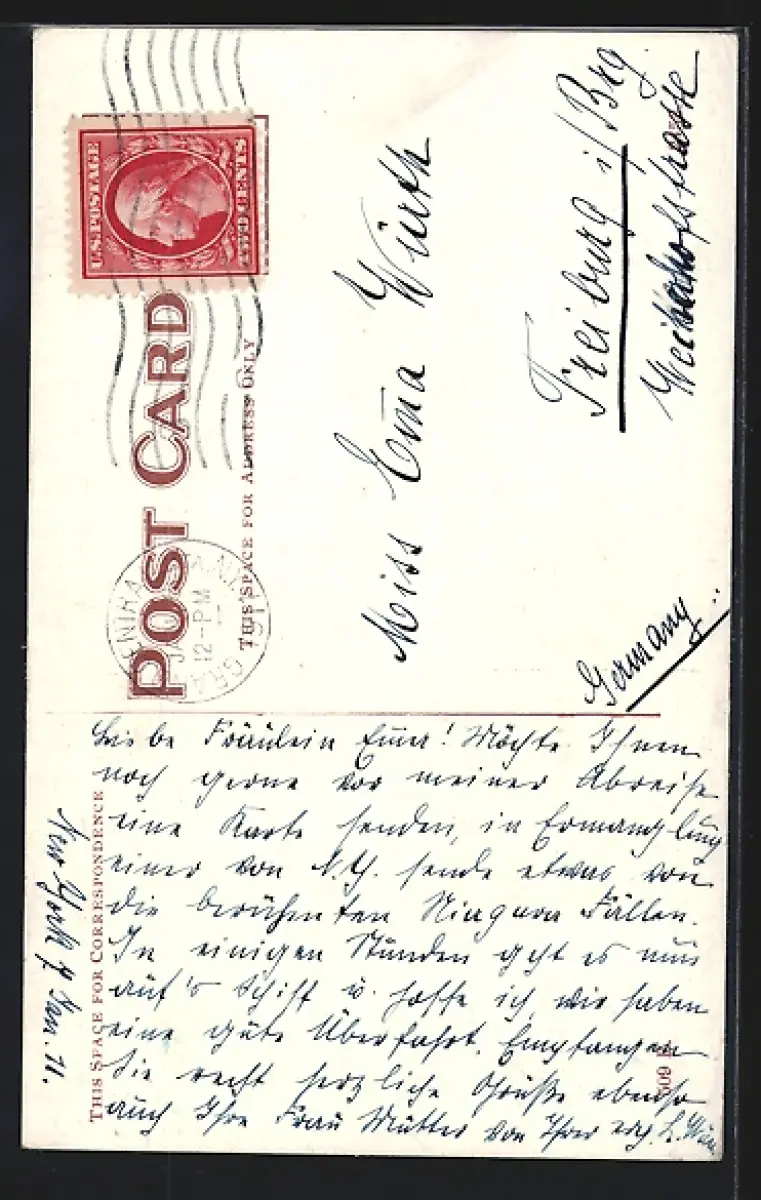 POST CARD
THIS SPACE FOR ADDRESS ONLY
U.S. POSTAGE
TWO CENTS
12-PM
1911
Miss Em̄a Würth
Freiburg i/Brg
Germany
THIS SPACE FOR CORRESPONDENCE
New York 7 Jan. 11.
Liebe Fräulein Em̄a! Möchte Ihnen
noch gerne vor meiner Abreise
eine Karte senden, in Ermanglung
einer von N.Y. sende etwas von
die berühmten Niagara Fällen.
In einigen Stunden geht es nun
auf's Schiff u. hoffe ich, wir haben
eine gute Überfahrt. Empfangen
Sie recht herzliche Grüße ebenso
auch Ihre Frau Mutter von Ihrer erg. L.
509